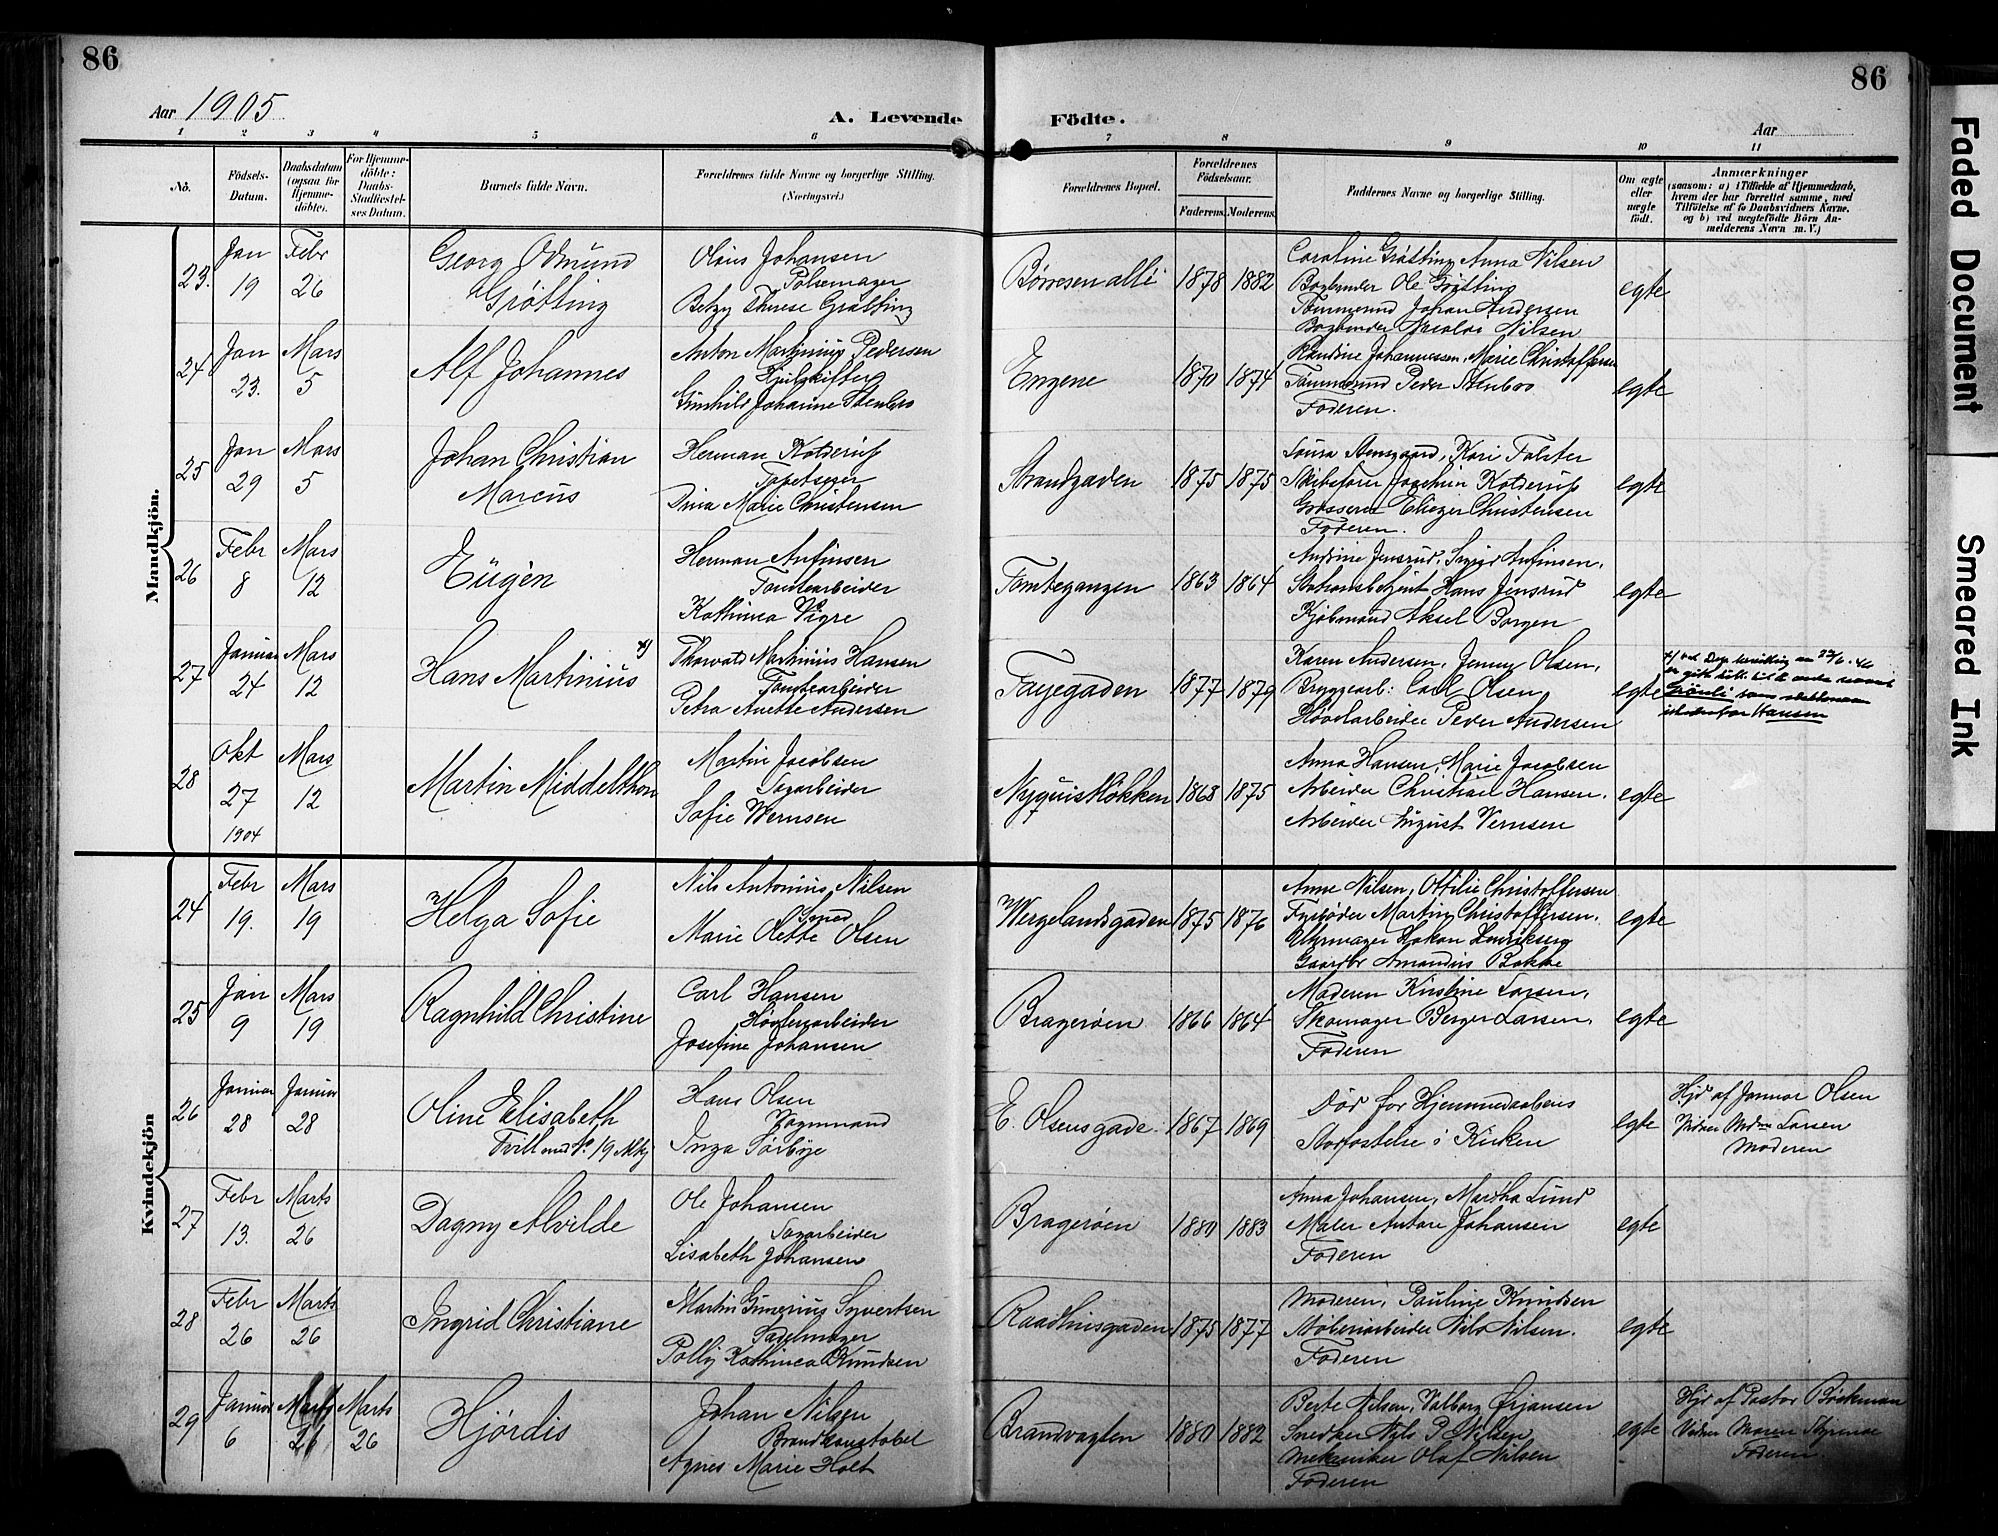 86
86
Aar 1905
A. Levende Födte.
Aar
1 2 3 4 5 6 7 8 9 10 11
No.
Födsels-Datum.
Daabsdatum (ogsaa for Hjemme-döbte).
For Hjemme-döbte: Daabs-Stadfæstel-ses Datum.
Barnets fulde Navn.
Forældrenes fulde Navne og borgerlige Stilling. (Næringsvei.)
Forældrenes Bopæl.
Forældrenes Födselsaar.
Faderens. Moderens.
Faddernes Navne og borgerlige Stilling.
Om ægte eller uægte födt.
Anmærkninger
(saasom: a) i Tilfælde af Hjemmedaab, hvem der har forrettet samme, med Tilföielse af to Daabsvidners Navne. og b) ved uægtefödte Börn An-melderens Navn m. V.)
Mandkjön.
23. Jan 19 Febr 26
Georg Odmund Grøtting
Olaus Johansen
Pølsemager
Betzy Therese Grøtting
Børresen allé 1878 1882
Caroline Grøtting Anna Nilsen
Bogbinder Ole Grøtting
Tømmermd Johan Andersen
Bogbinder Nicolai Nilsen
egte
24 Jan 23. Mars 5
Alf Johannes
Anton Martinius Pedersen
Gunhild Johanne Stenbro
Engene 1870 1874
Johannessen, Marie Christoffersen
Tømmermd Peder Stenbro
Faderen.
egte
25 Jan 29 Mars 5
Johan Christian Marcus
Herman Kolderup
Tapetserer
Dina Marie Christensen
Strandgaden 1875 1875
Kari Falster
Skibsfører Joachim Kolderup
Grosserer Eliezer Christensen
Faderen.
egte
26 Febr 8 Mars 12
Eugèn
Herman Anfinsen
Tomtearbeider
Kathinca Vigre
Tomtegangen 1863 1864
Andrine Jensrud, Sigrid Anfinsen,
Stationsbetjent Hans Jensrud
Kjøbmand Aksel Borgen
egte
27 Januar 24 Mars 12
Hans Martinius x)
Thorvald Martinius Hansen
Tomtearbeider
Petra Anette Andersen
Fayegaden 1877 1879
Karen Andersen, Jenny Olsen,
Bryggearb: Carl Olsen,
Høvlarbeider Peder Andersen
egte
Grönli som
istedenfor Hansen
28 Okt 27 1904 Mars 12
Martin Middelthon
Martin Jacobsen
Sagarbeider
Sofie Wernsen
Nyquistløkken 1868 1875
Anna Hansen, Marie Jacobsen
Arbeider Christian Hansen.
Arbeider August Vernsen
egte
Kvindekjön
24 Febr 19. Mars 19
Helga Sofie
Nils Antonius Nilsen
Smed
Marie Olette Olsen
Wergelandsgaden 1875 1876
Anne Nilsen, Ottilie Christoffersen
Fyrbøder Martin Christoffersen,
Uhrmager Hakon Henriksen
Gaardbr Amandus Bakke
egte
25 Jan 9 Mars 19
Ragnhild Christine
Carl Hansen
Høvleriarbeider
Josefine Johansen
Bragerøen 1866 1864
Moderen Kirstine Larsen,
Skomager Berger Larsen,
Faderen
egte
26 Januar 28 Januar 28
Oline Elisabeth
Tvill med No 19 Mkj
Hans Olsen
Vognmand
Inga Sørbye
E. Olsens gade. 1867 1869
Død før Hjemmedaabens
Stadfæstelse i Kirken
egte
Hjd af Jordmor Olsen
Larsen
Moderen
27 Febr 13. Marts 26
Dagny Alvilde
Ole Johansen
Sagarbeider
Lisabeth Johansen
Bragerøen 1880 1883
Anna Johansen, Martha Lund
Maler Antore Johansen
Faderen
egte
28 Febr 26 Marts 26
Ingrid Christiane
Martin Gunerius Syvertsen
Sadelmager
Polly Kathinca Knudsen
Raadhusgaden 1875 1877
Moderen, Pauline Knudsen
Møbelarbeider Nils Nilsen.
Faderen
egte
29 Januar 6 Marts 26 Marts 26
Hjørdis
Johan Nilsen
Brandkonstabel
Agnes Marie Holt
Brandvagten 1880 1882
Berte Nilsen, Valborg Ørjansen
Snedker Nils P. Nilsen,
Mekaniker Olaf Nilsen
Faderen
egte
Hjd af Pastor Bøckman
Vidner Maren
Faderen
Faded Document
Smeared Ink